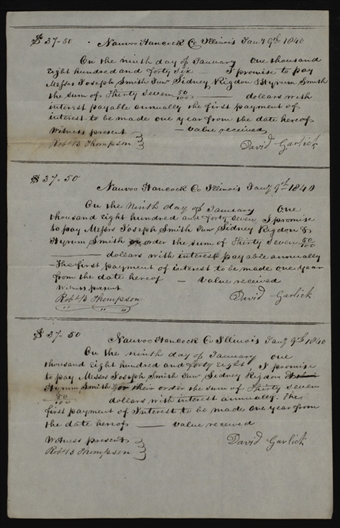 $37-50 Nauvoo Hancock Co Illinois Jany 9th 1840
On the ninth day of January one thousand
eight hundred and forty six — I promise to pay
Messrs Joseph Smith Junr Sidney Rigdon & Hyrum Smith
the sum of Thirty Seven 50/100 dollars with
interest payable annually the first payment of
interest to be made one year from the date hereof
Witness present — value received
Robt B Thompson David Garlick
$37-50
Nauvoo Hancock Co Illinois Jany 9th 1840
On the Ninth day of January One
thousand eight hundred and forty seven I promise
to pay Messrs Joseph Smith Junr Sidney Rigdon &
Hyrum Smith or order the sum of Thirty Seven 50/100
— dollars with interest payable annually
The first payment of interest to be made one year
from the date hereof — value received
Witness present
Robt B Thompson David Garlick
$37-50
Nauvoo Hancock Co Illinois Jany 9th 1840
On the ninth day of January one
thousand eight hundred and forty eight I promise
to pay Messrs Joseph Smith Junr Sidney Rigdon
Hyrum Smith or their order the sum of Thirty seven
50/100 dollars with interest annually. The
first payment of Interest to be made one year from
the date hereof — value received
Witness present
Robt B Thompson David Garlick